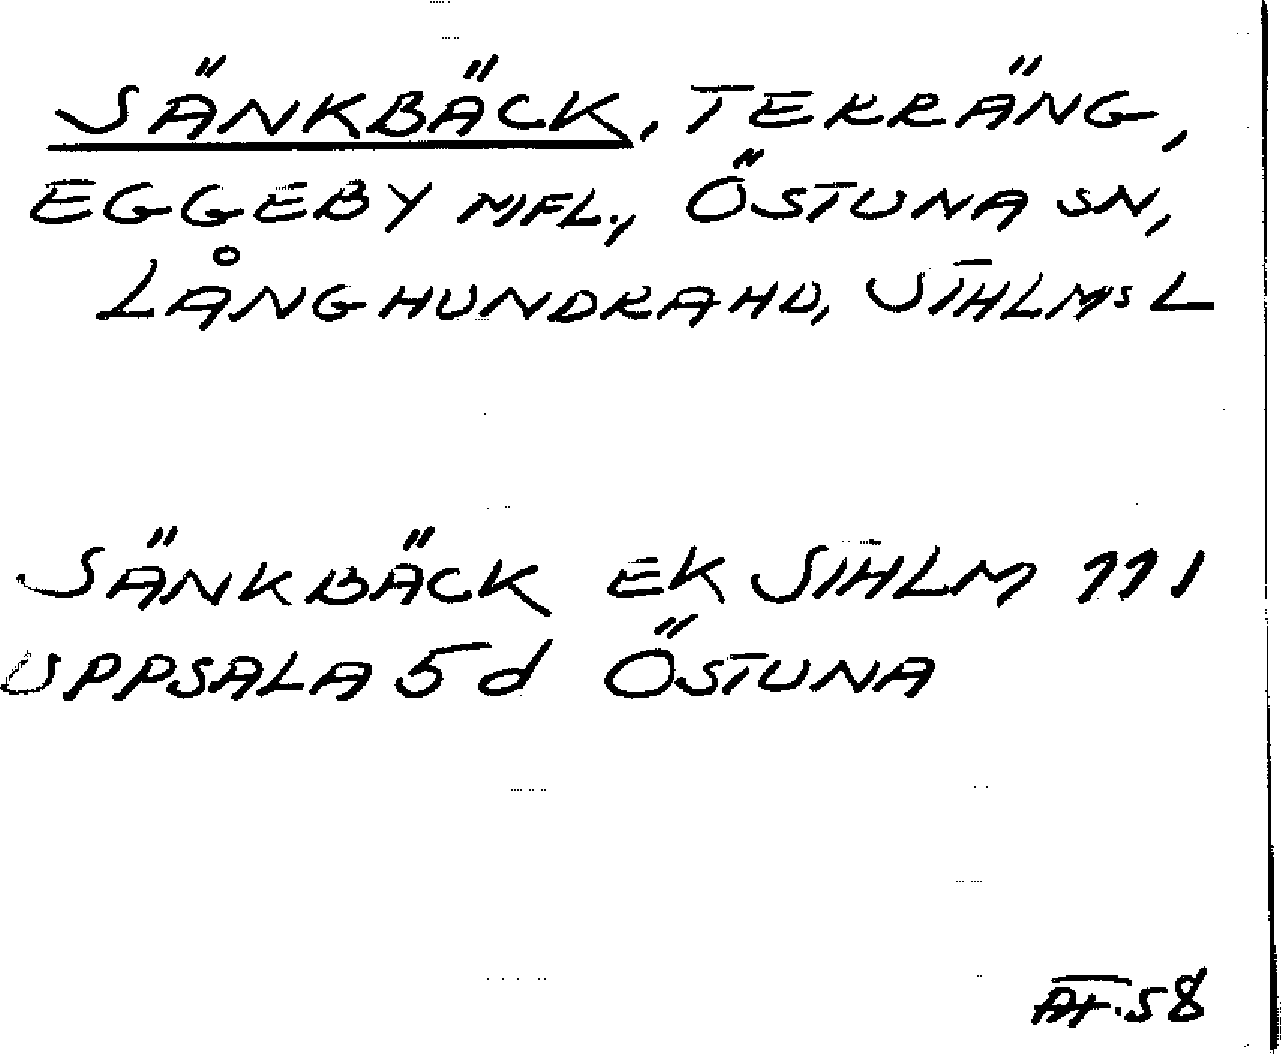 SÄNKBÄCK, TERRÄNG,
EGGEBY MFL., ÖSTUNA SN,
LÅNGHUNDRA HD, STHLMS L
SÄNKBÄCK EK STHLM 111
UPPSALA 5d ÖSTUNA
AF.58